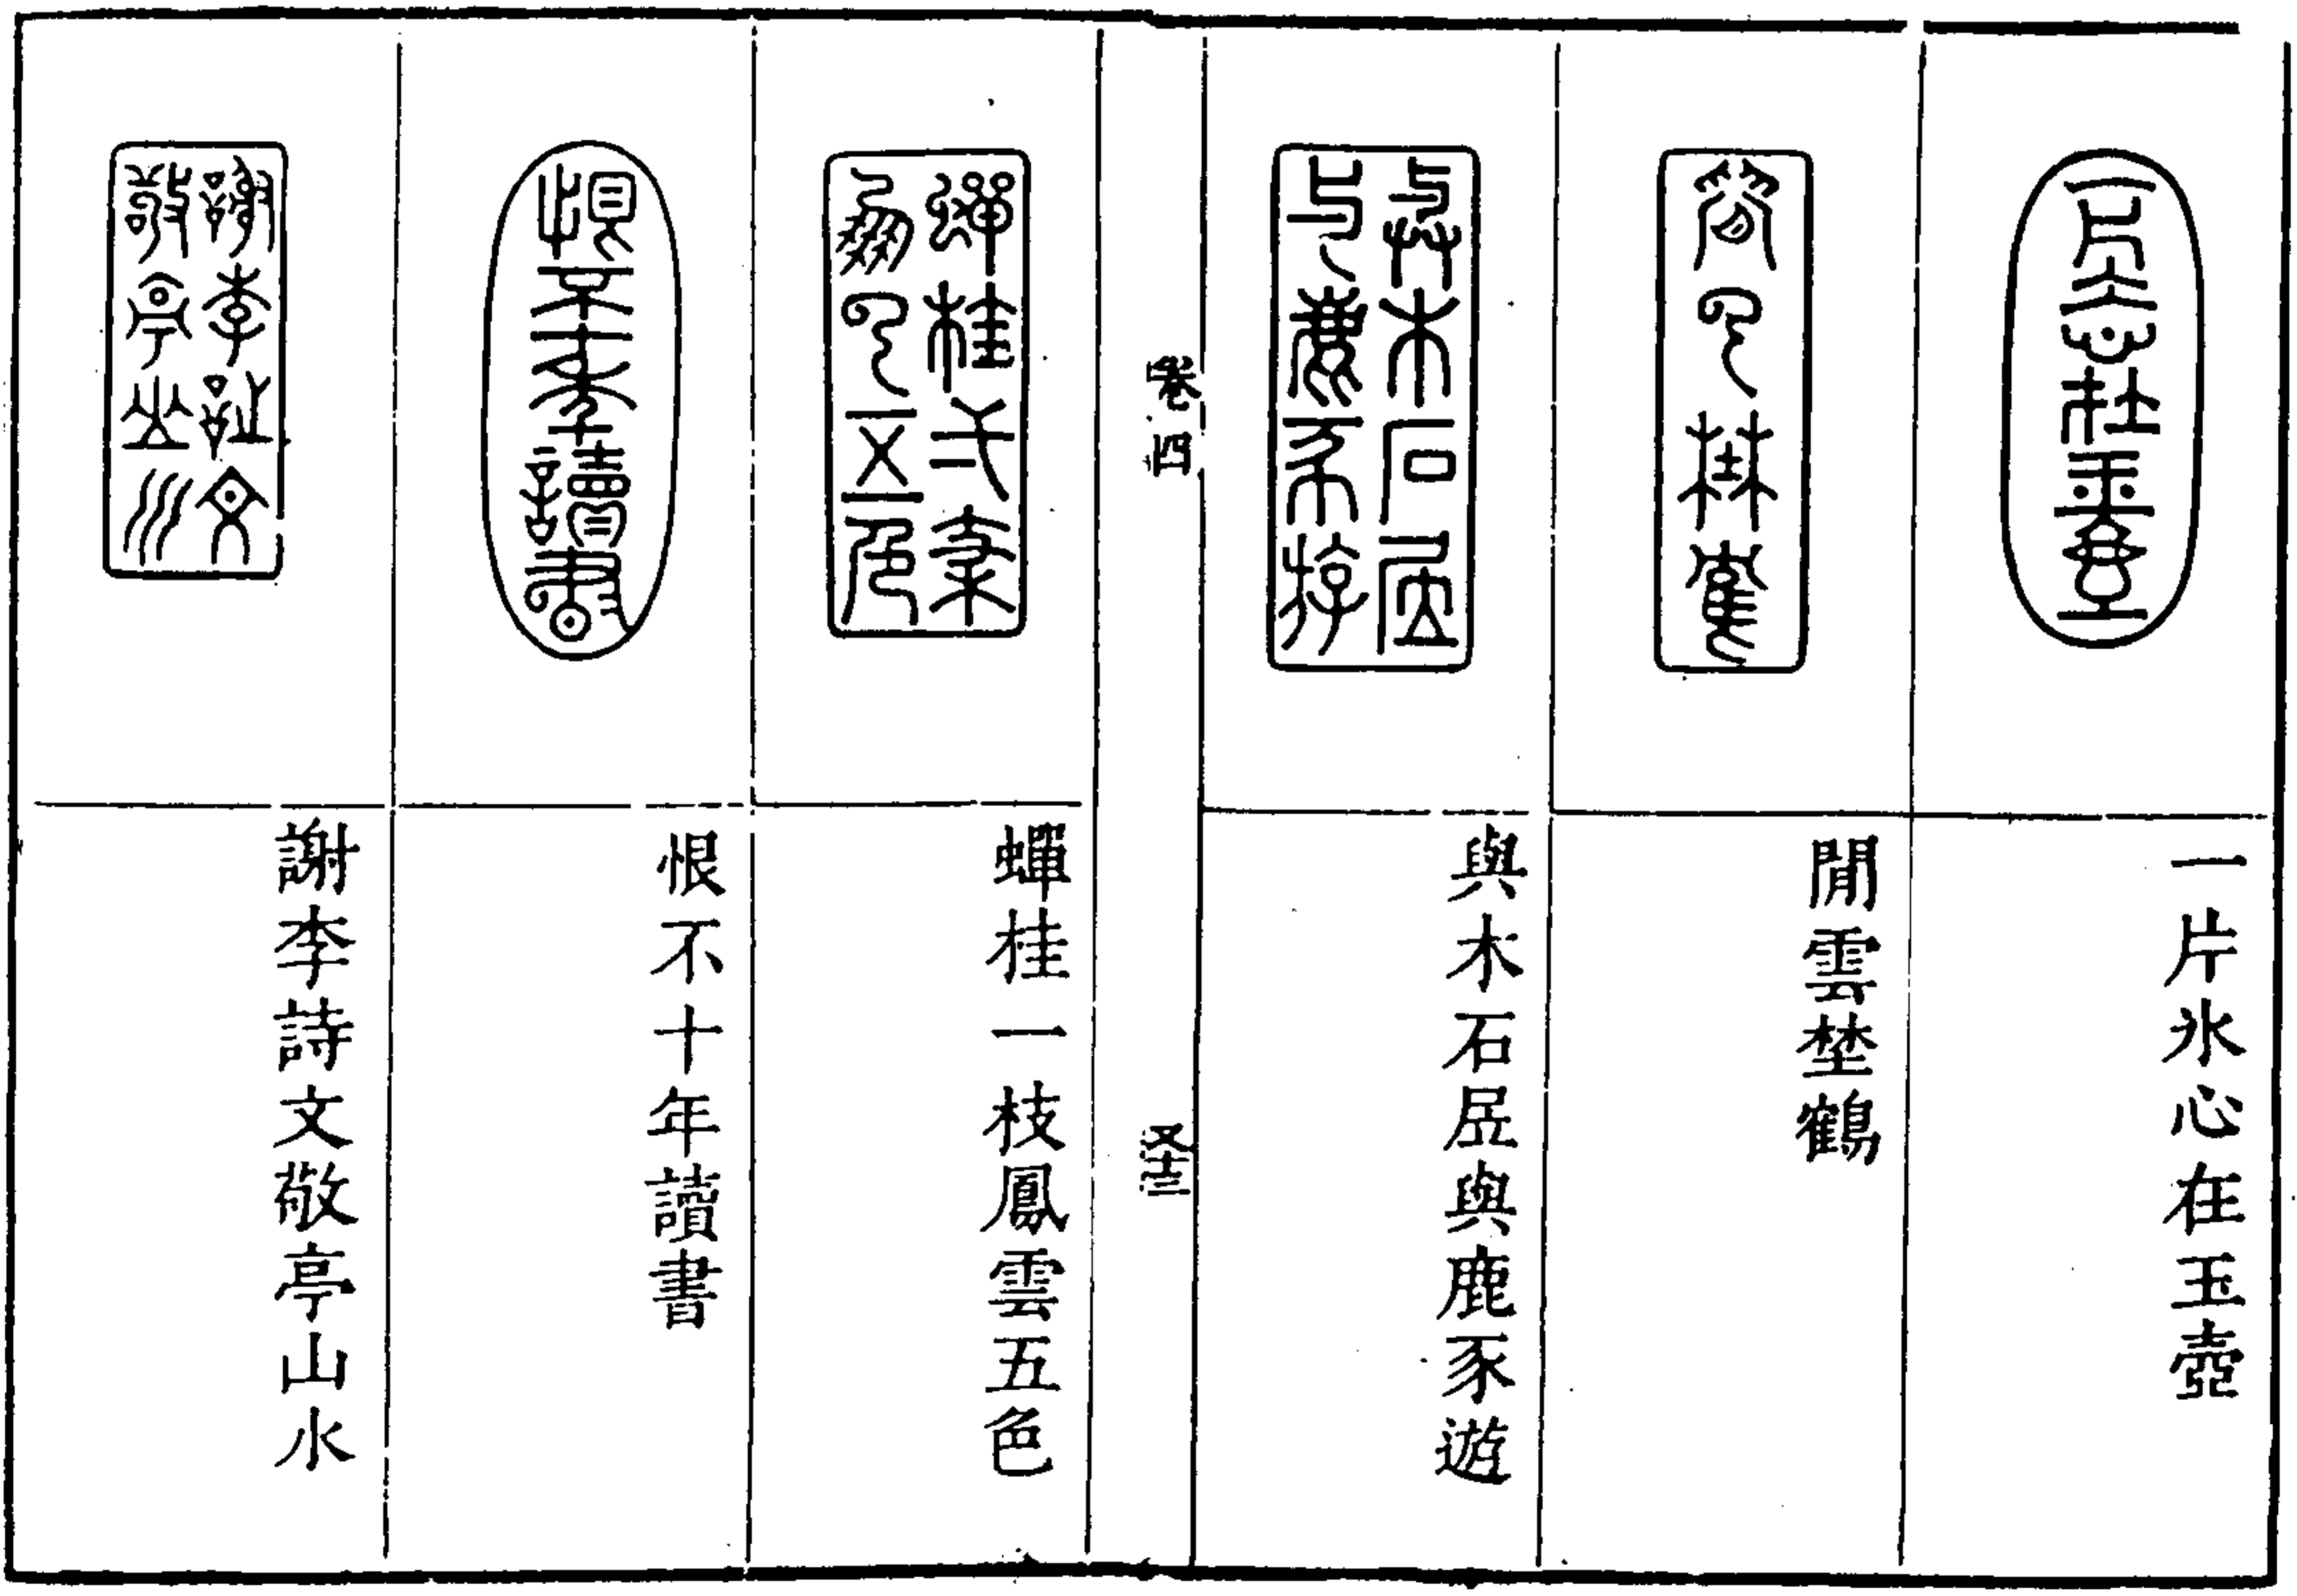 一片氷心在玉壺
閒雲埜鶴
與木石居與鹿豕遊
卷四
又十三
蟬桂一枝鳳雲五色
恨不十年讀書
謝李詩文敬亭山水